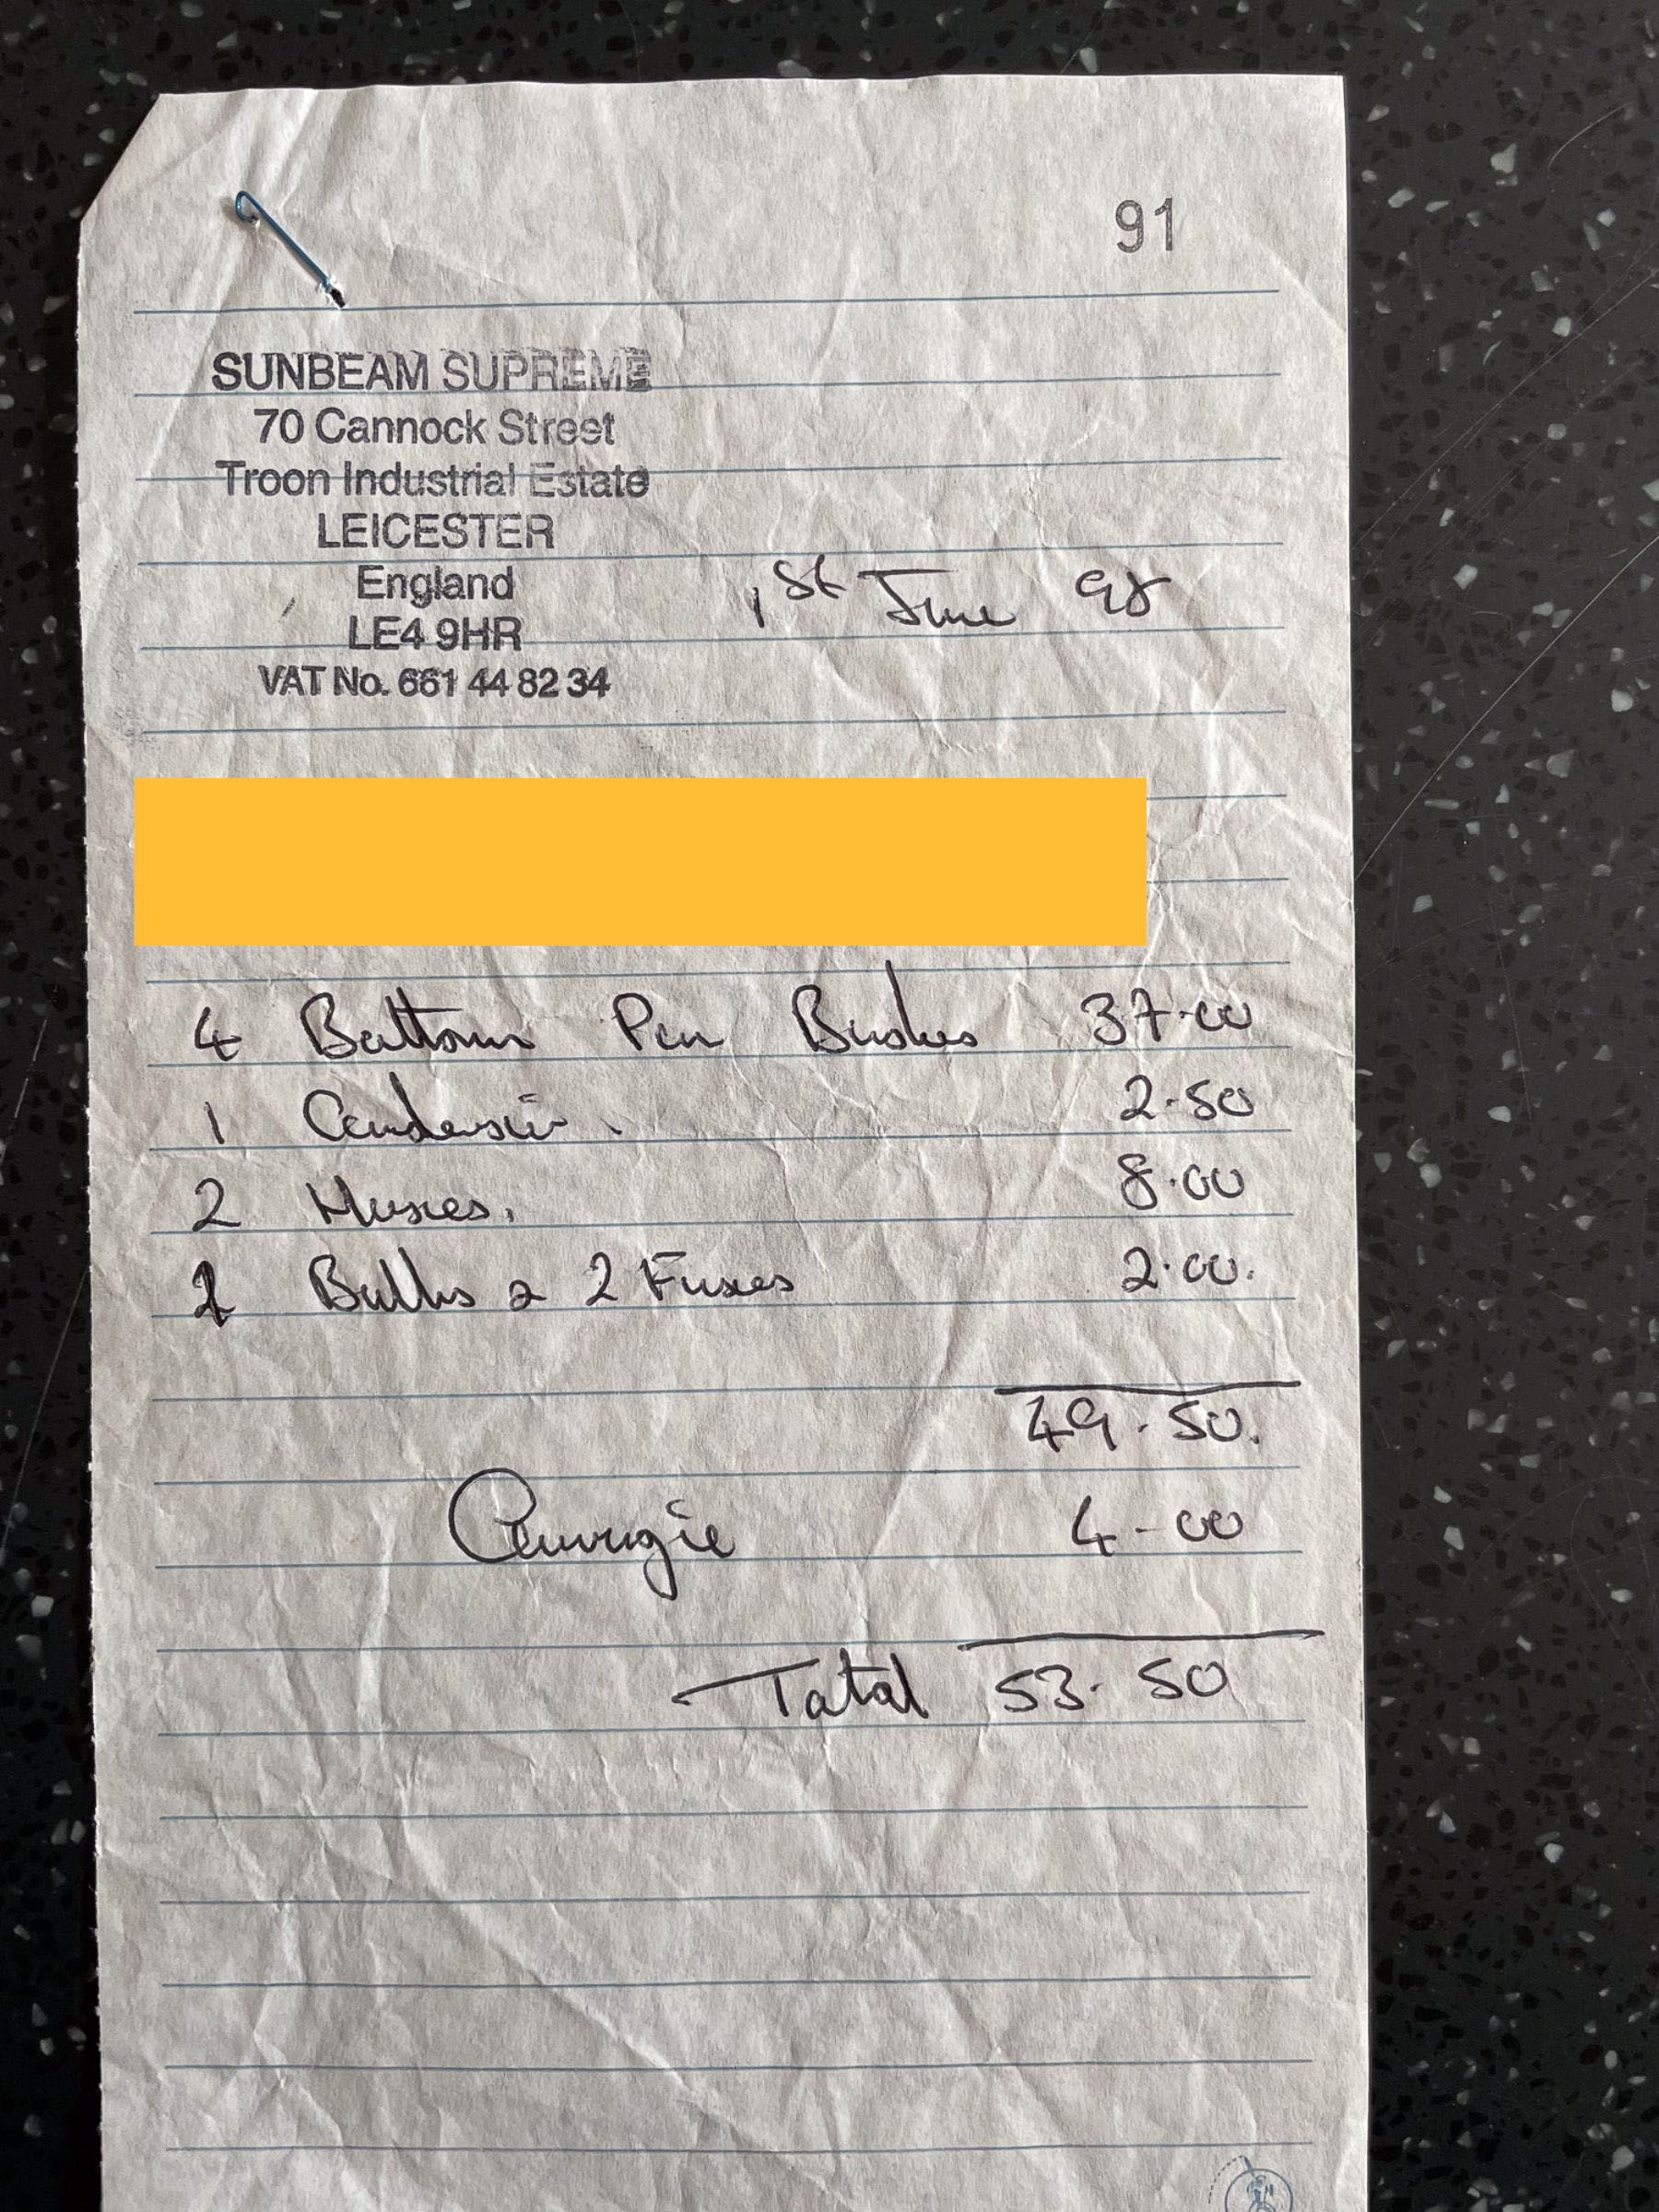 91
SUNBEAM SUPREME
70 Cannock Street
Troon Industrial Estate
LEICESTER
England
LE4 9HR
VAT No. 661 44 82 34
1st June 98
4 Bottom Pin Bushes 37.00
1 2.50
2 8.00
Bulbs 2 Fuses 2.00.
49.50.
4-00
Total 53.50